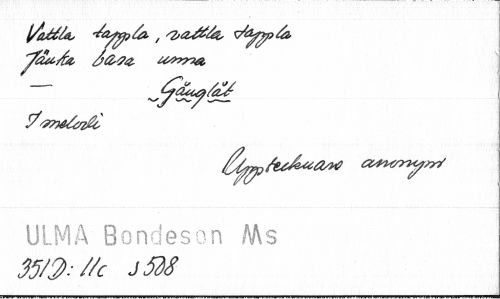 Vattla tappla, vattla tappla
Jänka bara unna
— Gånglåt
1 melodi
Upptecknare anonym
ULMA Bondeson Ms
351D: 11c s 508